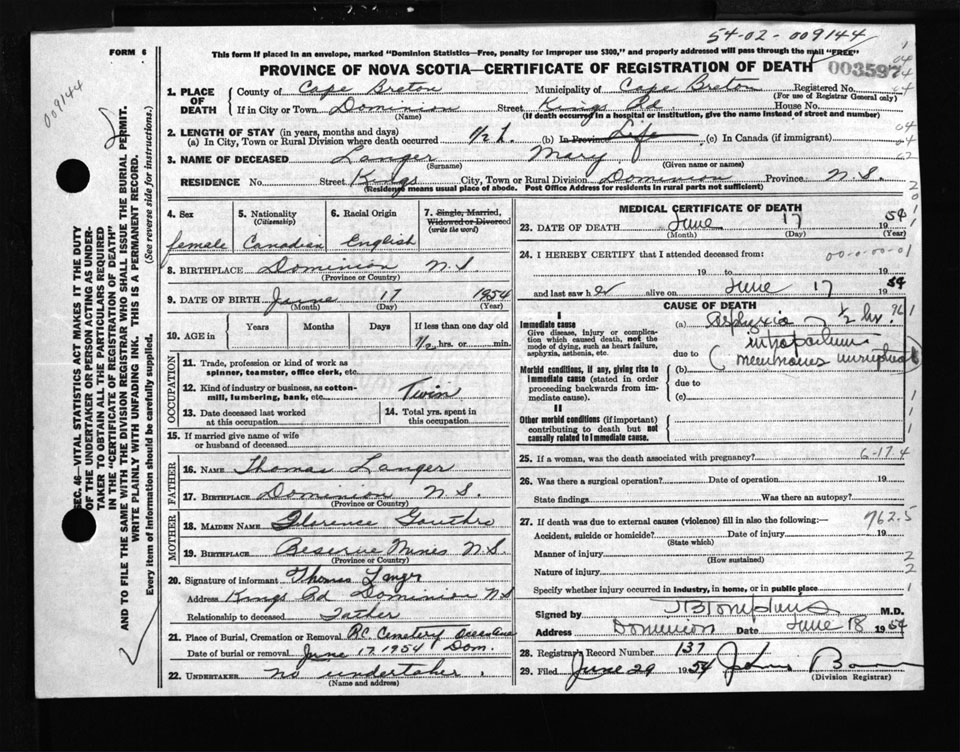 54-02-009144
FORM 6
This form if placed in an envelope, marked "Dominion Statistics—Free, penalty for improper use $300," and properly addressed will pass through the mail "FREE"
PROVINCE OF NOVA SCOTIA—CERTIFICATE OF REGISTRATION OF DEATH
003597
009144
SEC. 46—VITAL STATISTICS ACT MAKES IT THE DUTY
OF THE UNDERTAKER OR PERSON ACTING AS UNDER-
TAKER TO OBTAIN ALL THE PARTICULARS REQUIRED
IN THE "CERTIFICATE OF REGISTRATION OF DEATH"
AND TO FILE THE SAME WITH THE DIVISION REGISTRAR WHO SHALL ISSUE THE BURIAL PERMIT.
WRITE PLAINLY WITH UNFADING INK. THIS IS A PERMANENT RECORD.
Every item of information should be carefully supplied. (See reverse side for instructions.)
1. PLACE OF DEATH County of Cape Breton Municipality of Cape Breton Registered No.
(For use of Registrar General only)
If in City or Town Dominion Street Kings Rd. House No.
(Name) (If death occurred in a hospital or institution, give the name instead of street and number)
2. LENGTH OF STAY (in years, months and days)
(a) In City, Town or Rural Division where death occurred 1/2 h. (b) In Province Life (c) In Canada (if immigrant)
3. NAME OF DECEASED Langer Mary
(Surname) (Given name or names)
RESIDENCE No. Street Kings City, Town or Rural Division Dominion Province N.S.
(Residence means usual place of abode. Post Office Address for residents in rural parts not sufficient)
4. Sex 5. Nationality (Citizenship) 6. Racial Origin 7. Single, Married, Widowed or Divorced (write the word)
female Canadian English
8. BIRTHPLACE Dominion N.S
(Province or Country)
9. DATE OF BIRTH June 17 1954
(Month) (Day) (Year)
10. AGE in Years Months Days If less than one day old
1/2 hrs. or min.
OCCUPATION
11. Trade, profession or kind of work as
spinner, teamster, office clerk, etc.
12. Kind of industry or business, as cotton-
mill, lumbering, bank, etc. Twin
13. Date deceased last worked
at this occupation
14. Total yrs. spent in
this occupation
15. If married give name of wife
or husband of deceased
FATHER
16. NAME Thomas Langer
17. BIRTHPLACE Dominion N.S.
(Province or Country)
MOTHER
18. MAIDEN NAME Florence Gouthro
19. BIRTHPLACE Reserve Mines N.S.
(Province or Country)
20. Signature of informant Thomas Langer
Address Kings Rd Dominion NS
Relationship to deceased Father
21. Place of Burial, Cremation or Removal R.C. Cemetery
Date of burial or removal June 17 1954 Dom.
22. UNDERTAKER No undertaker
(Name and address)
MEDICAL CERTIFICATE OF DEATH
23. DATE OF DEATH June 17 1954
(Month) (Day) (Year)
24. I HEREBY CERTIFY that I attended deceased from: 00-0-00-01
19 to 19
and last saw her alive on June 17 1954
CAUSE OF DEATH
I
Immediate cause
Give disease, injury or complica-
tion which caused death, not the
mode of dying, such as heart failure,
asphyxia, asthenia, etc.
(a) Asphyxia 1/2 hr.
due to
Morbid conditions, if any, giving rise to
immediate cause (stated in order
proceeding backwards from im-
mediate cause).
(b) intrapartum
membranes unruptured
due to
(c)
II
Other morbid conditions (if important)
contributing to death but not
causally related to immediate cause.
25. If a woman, was the death associated with pregnancy? 6-17.4
26. Was there a surgical operation? Date of operation 19
State findings Was there an autopsy?
27. If death was due to external causes (violence) fill in also the following:— 762.5
Accident, suicide or homicide? Date of injury 19
(State which)
Manner of injury
(How sustained)
Nature of injury
Specify whether injury occurred in industry, in home, or in public place
Signed by J B Tompkins M.D.
Address Dominion Date June 18 1954
28. Registrar's Record Number 137
29. Filed June 29 1954 John
(Division Registrar)